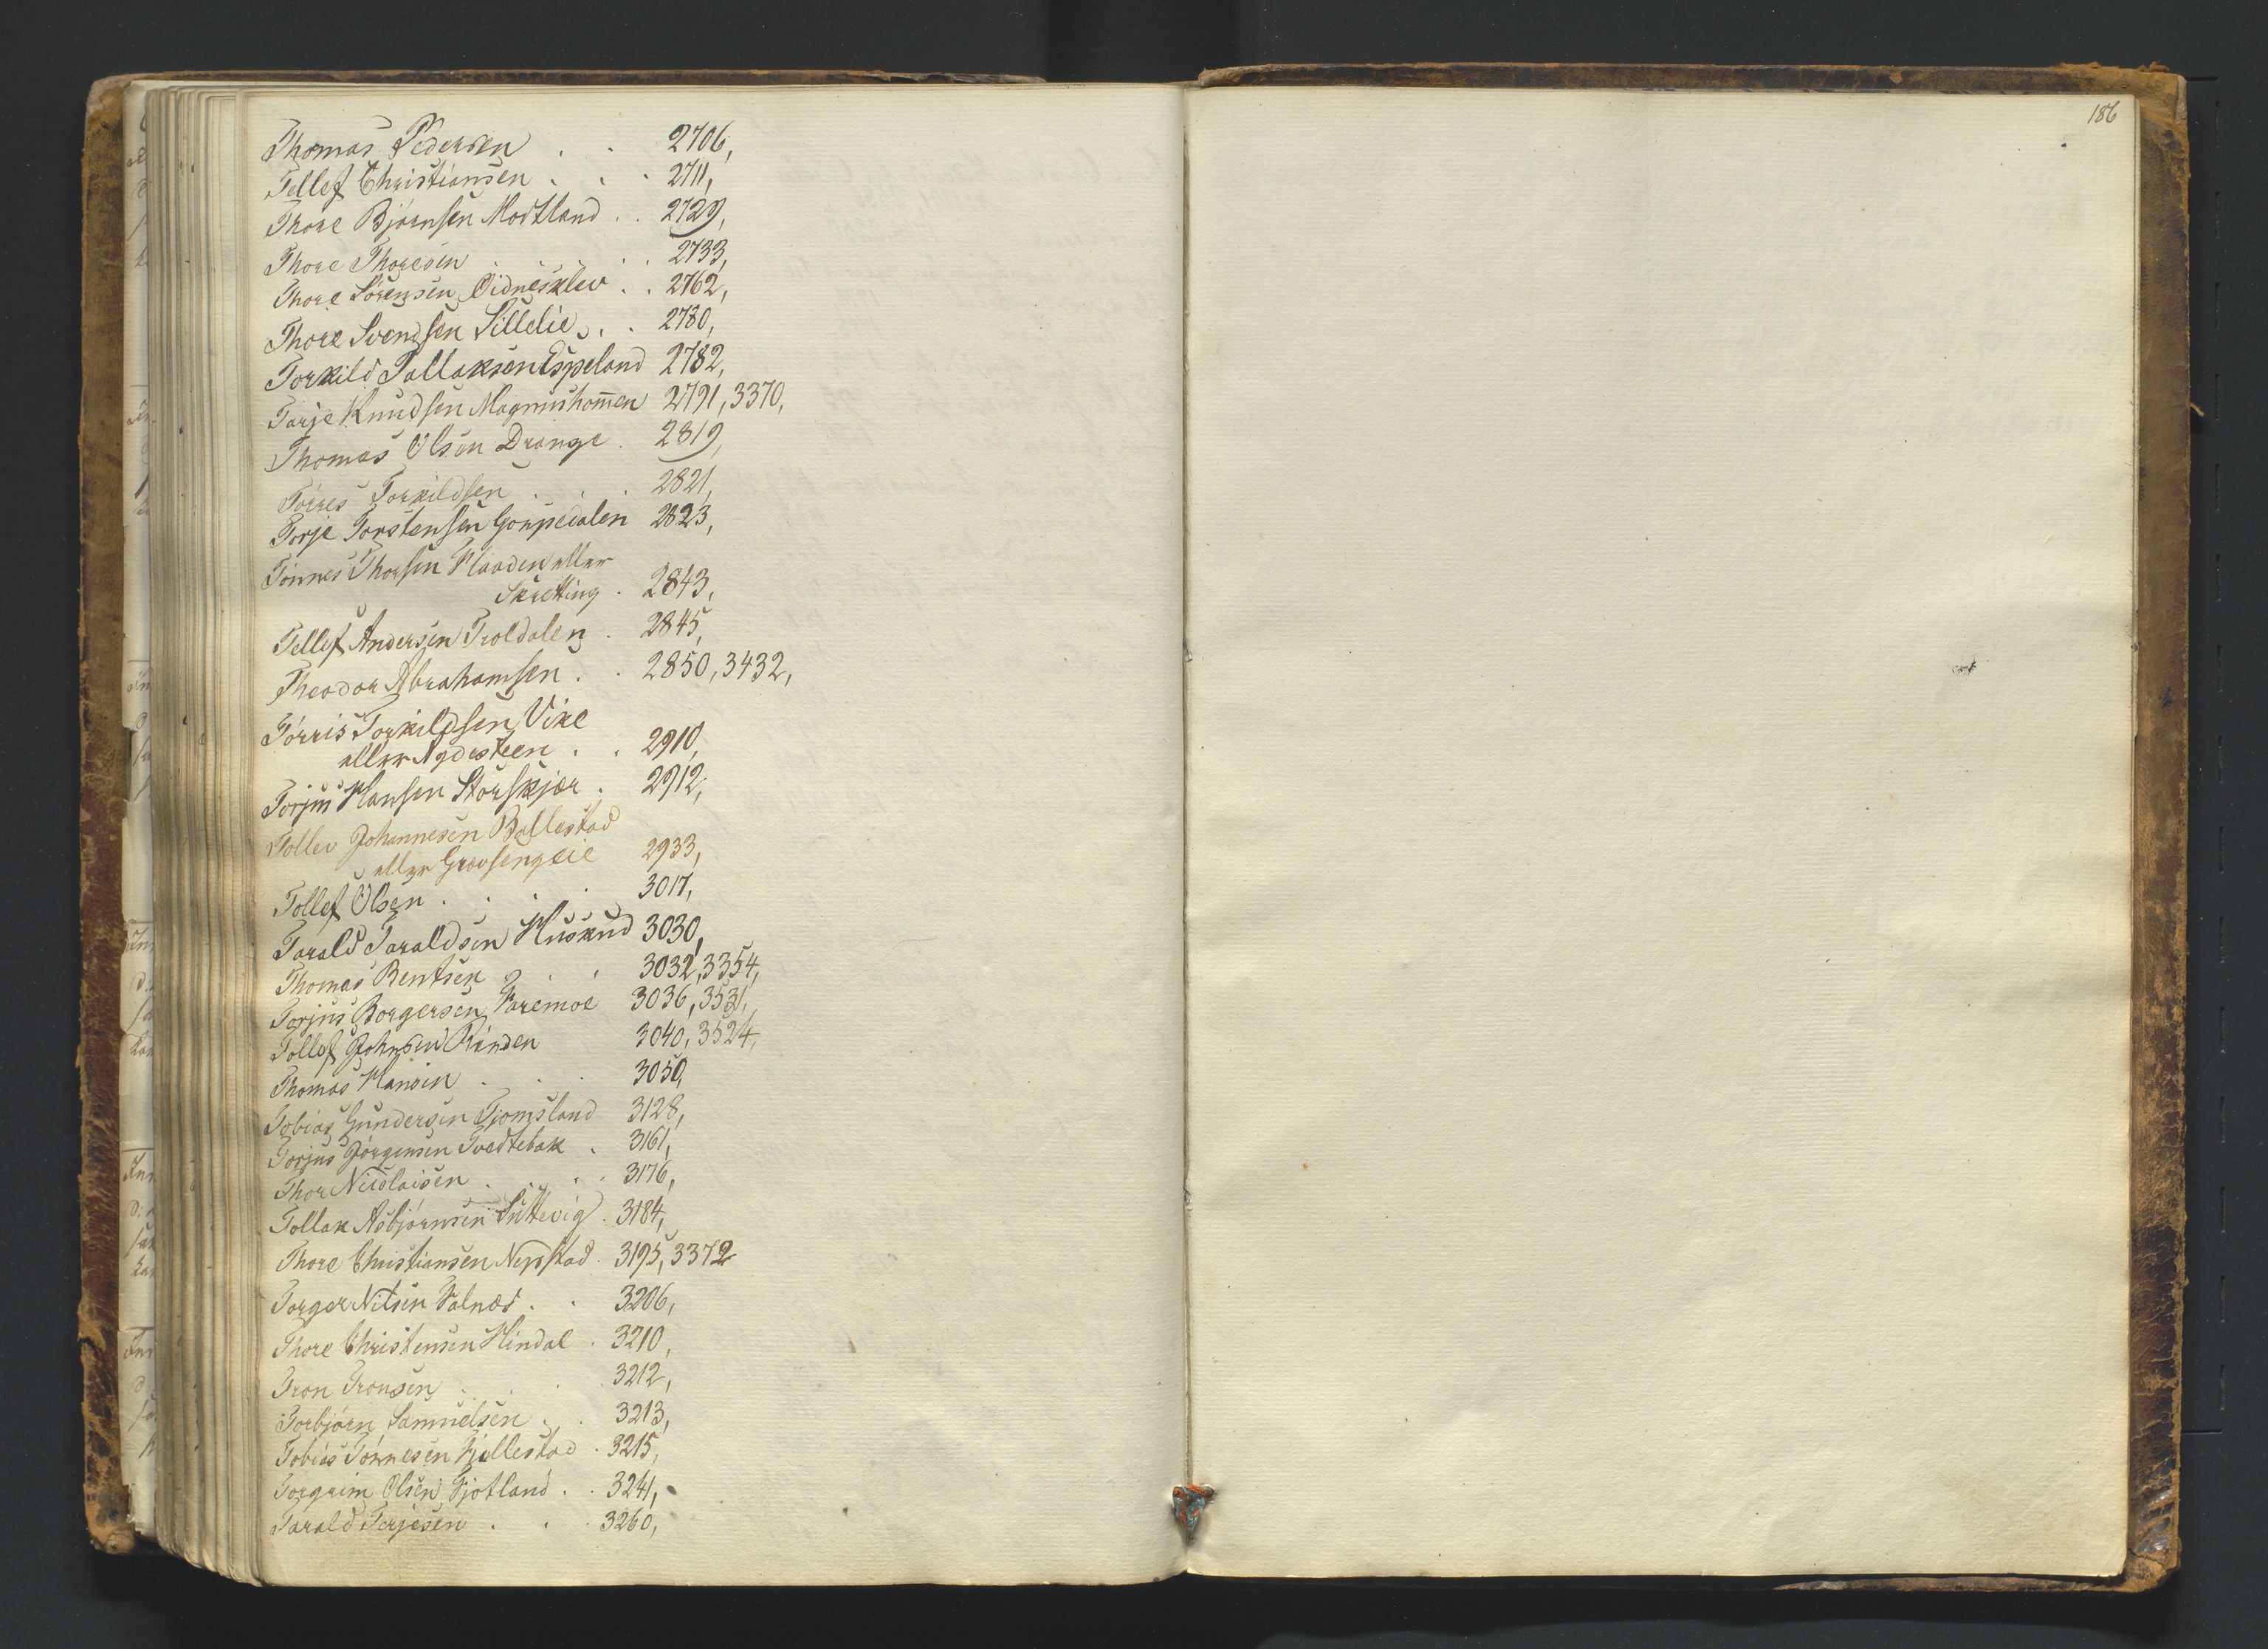 186
Thomas Pedersen . . 2706,
Tellef Christiansen . . . 2711,
Thore Bjørnsen Modtland . . 2729,
Thore Thoresen . . . . 2733,
Thore Sørensen Eidnesklev . . 2762,
Thore Svendsen Lillelie . . 2780,
Torkild Tallaksen Espeland 2782,
Tarje Knudsen Magnushom̅en 2791, 3370,
Thomas Olsen Drange . 2819,
Tørres Torkildsen . . . 2821,
Torje Torstensen 2823,
Tønnes Thorsen Haaden eller
Skretting . 2843,
Tellef Andersen Troldalen . 2845,
Theodor Abrahamsen . . 2850, 3432,
Tørris Torkildsen Vike
eller Nydesteen . . 2910,
Torjus Hansen Storskjær . 2912,
Tollev Johannesen Ballestad
eller 2933,
Tollef Olsen . . . . 3017,
Tarald Taraldsen 3030,
Thomas Bentsen . . 3032, 3354,
Torjus Borgersen Faremoe 3036, 3531,
Tollef Johnsen Rinden 3040, 3524,
Thomas Hansen . . . 3050,
Tobias Gundersen Tjomsland 3128,
Torjus Jørgensen Tvedtebak . 3161,
Thor Nicolaisen . . . . 3176,
Tollak Asbjørnsen Suttevig . 3184,
Thore Christiansen Nepstad . 3195, 3372
Torger Nilsen Valnæs . . 3206,
Thore Christensen Hindal . 3210,
Tron Tronsen . . . 3212,
Torbjørn Samuelsen . . 3213,
Tobias Tønnesen Fjellestad . 3215,
Torgrim Olsen Fjotland . . 3241,
Tarald Terjesen . . . 3260,